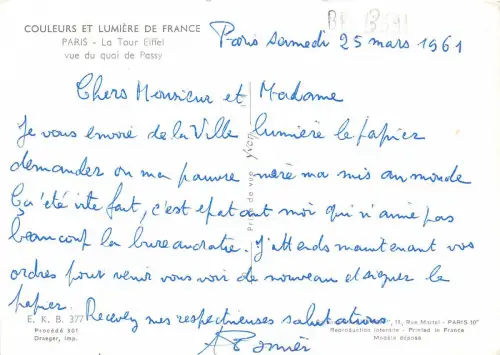 COULEURS ET LUMIÈRE DE FRANCE
PARIS - La Tour Eiffel
vue du quai de Passy
Paris samedi 25 mars 1961
Chers Monsieur et Madame
Je vous envoie de la Ville lumière le papier
demander ou ma pauvre mère ma mis au monde
Ça été vite fait, c'est epatant moi qui n'aime pas
beaucoup la bureaucratie. J'attends maintenant vos
ordres pour venir vous voir de nouveau et signer le
papier. Recevez mes respectueuses salutations
E. K. B. 377
Procédé 301
Draeger, imp.
Prise de vue Yvon
15, Rue Martel - PARIS-10e
Reproduction interdite - Printed in France
Modèle déposé